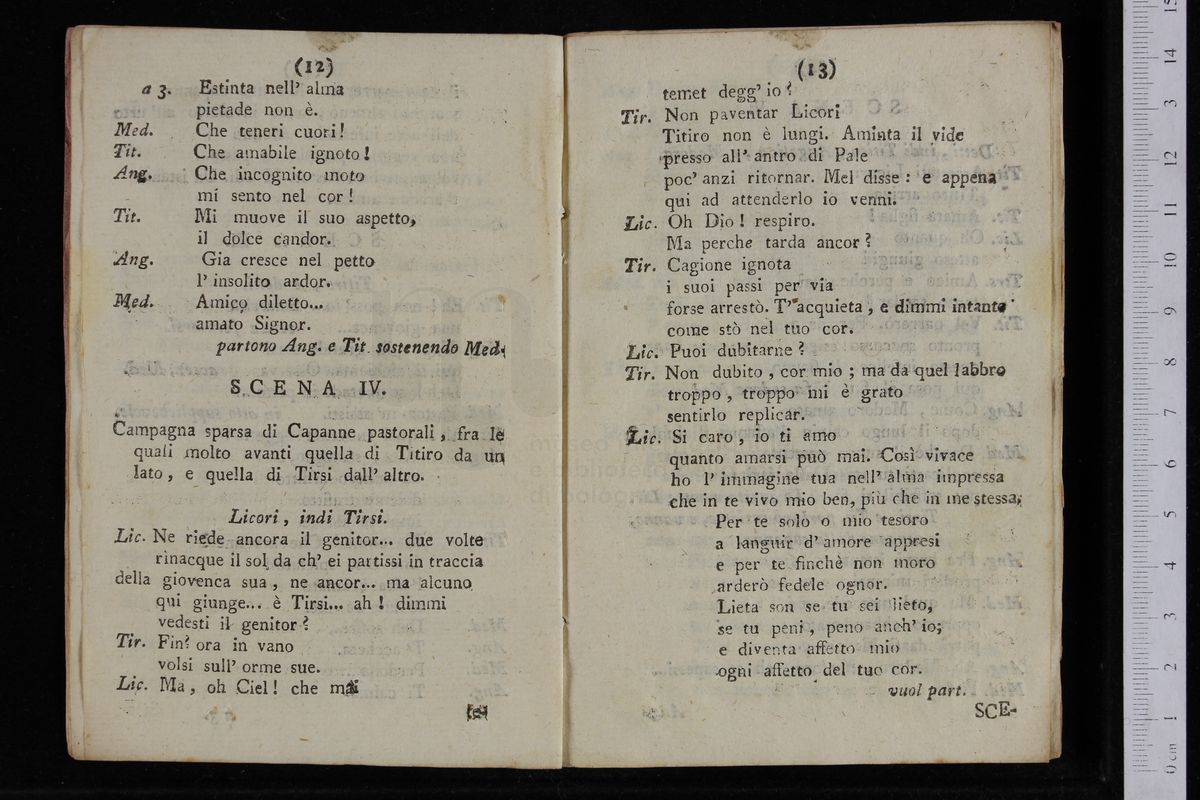 (12)
a 3. Estinta nell' alma
pietade non è.
Med. Che teneri cuori!
Tit. Che amabile ignoto!
Ang. Che incognito moto
mi sento nel cor!
Tit. Mi muove il suo aspetto,
il dolce candor.
Ang. Gia cresce nel petto
l' insolito ardor.
Med. Amico diletto...
amato Signor.
partono Ang. e Tit. sostenendo Med.
SCENA IV.
Campagna sparsa di Capanne pastorali, fra le
quali molto avanti quella di Titiro da un
lato, e quella di Tirsi dall' altro.
Licori, indi Tirsi.
Lic. Ne riede ancora il genitor... due volte
rinacque il sol da ch' ei partissi in traccia
della giovenca sua, ne ancor... ma alcuno
qui giunge... è Tirsi... ah! dimmi
vedesti il genitor?
Tir. Fin? ora in vano
volsi sull' orme sue.
Lic. Ma, oh Ciel! che mai
(13)
temet degg' io?
Tir. Non paventar Licori
Titiro non è lungi. Aminta il vide
presso all' antro di Pale
poc' anzi ritornar. Mel disse: e appena
qui ad attenderlo io venni.
Lic. Oh Dio! respiro.
Ma perche tarda ancor?
Tir. Cagione ignota
i suoi passi per via
forse arrestò. T' acquieta, e dimmi intanto
come stò nel tuo cor.
Lic. Puoi dubitarne?
Tir. Non dubito, cor mio; ma da quel labbro
troppo, troppo mi è grato
sentirlo replicar.
Lic. Si caro, io ti amo
quanto amarsi può mai. Così vivace
ho l' immagine tua nell' alma impressa
che in te vivo mio ben, più che in me stessa,
Per te solo o mio tesoro
a languir d' amore appresi
e per te finchè non moro
arderò fedele ognor.
Lieta son se tu sei lieto,
se tu peni, peno anch' io;
e diventa affetto mio
ogni affetto del tuo cor.
vuol part.
SCE-
museo
e biblioteca
di bologna
0 cm 1 2 3 4 5 6 7 8 9 10 11 12 13 14 15